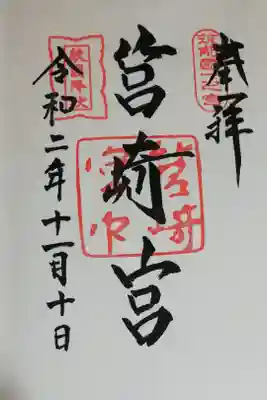 奉拝
筥崎宮
令和二年十一月十日
敵国降伏
筑前國一之宮